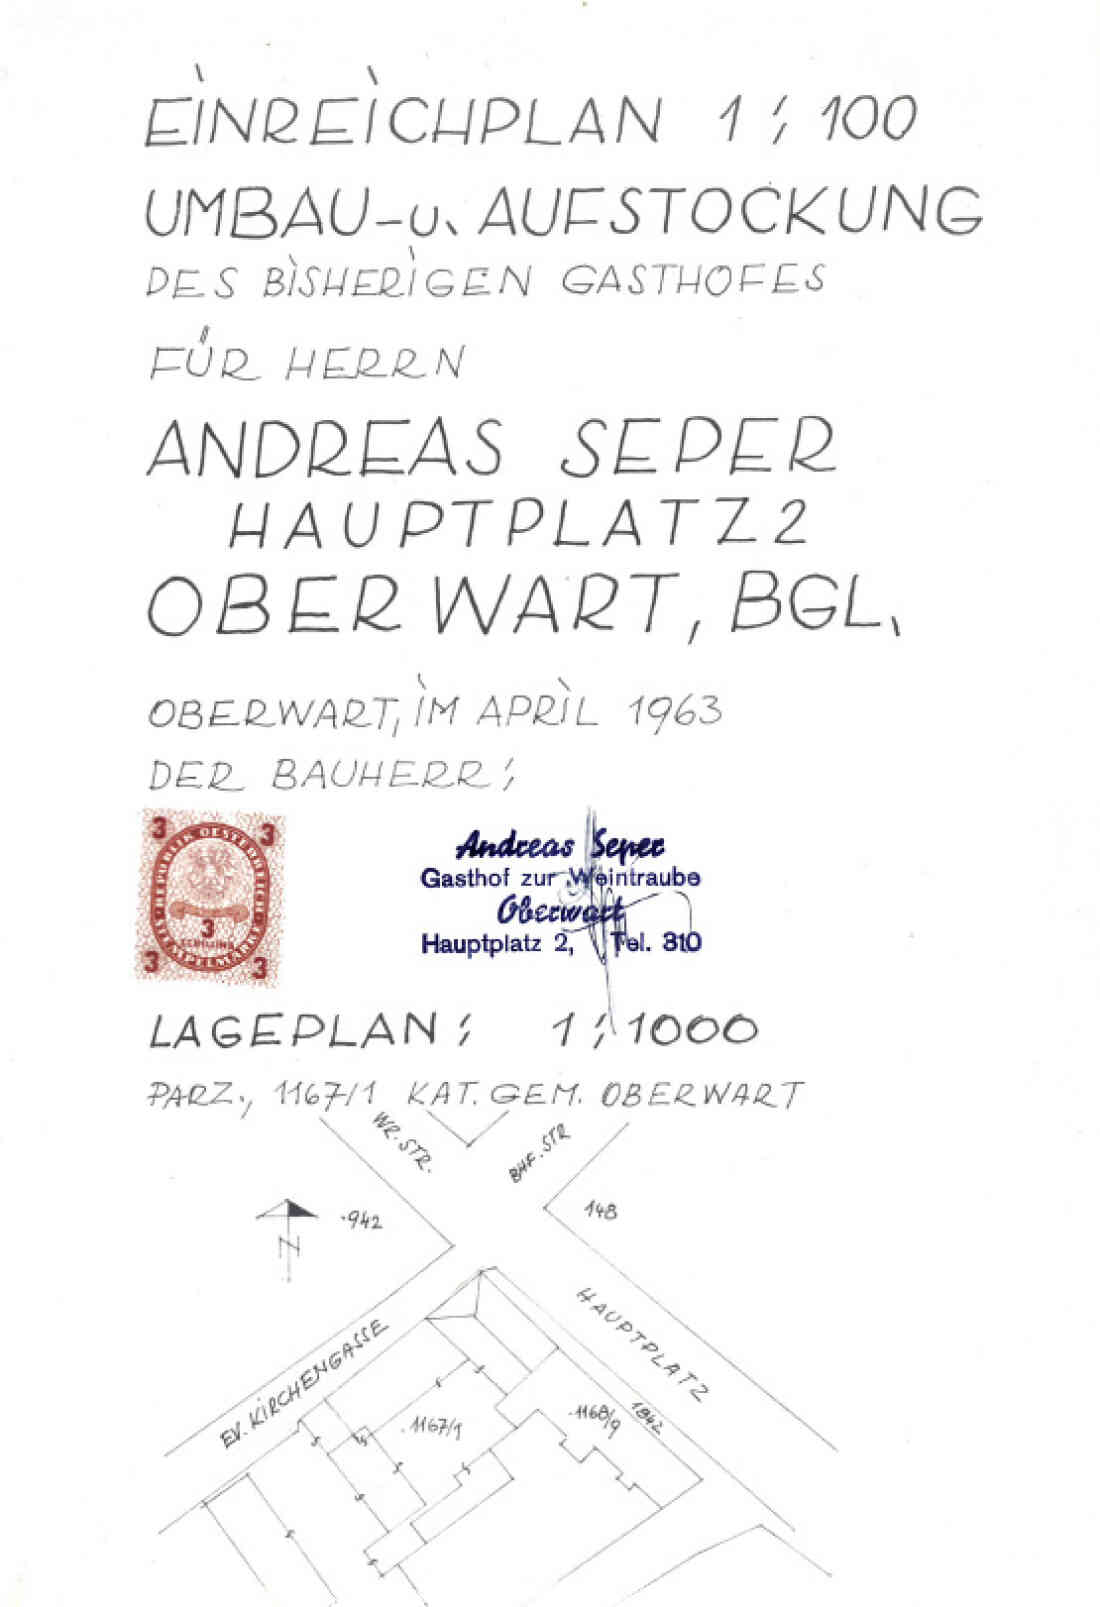 EINREICHPLAN 1:100
UMBAU-u. AUFSTOCKUNG
DES BISHERIGEN GASTHOFES
FÜR HERRN
ANDREAS SEPER
HAUPTPLATZ 2
OBERWART, BGL.
OBERWART, IM APRIL 1963
DER BAUHERR:
3 3
REPUBLIK OESTERREICH
3
SCHILLING
STEMPELMARKE
3 3
Andreas Seper
Gasthof zur Weintraube
Oberwart
Hauptplatz 2, Tel. 310
LAGEPLAN: 1:1000
PARZ., 1167/1 KAT. GEM. OBERWART
WR. STR.
BHF. STR
.942
148
N
HAUPTPLATZ
EV. KIRCHENGASSE
.1167/1
.1168/9
1842